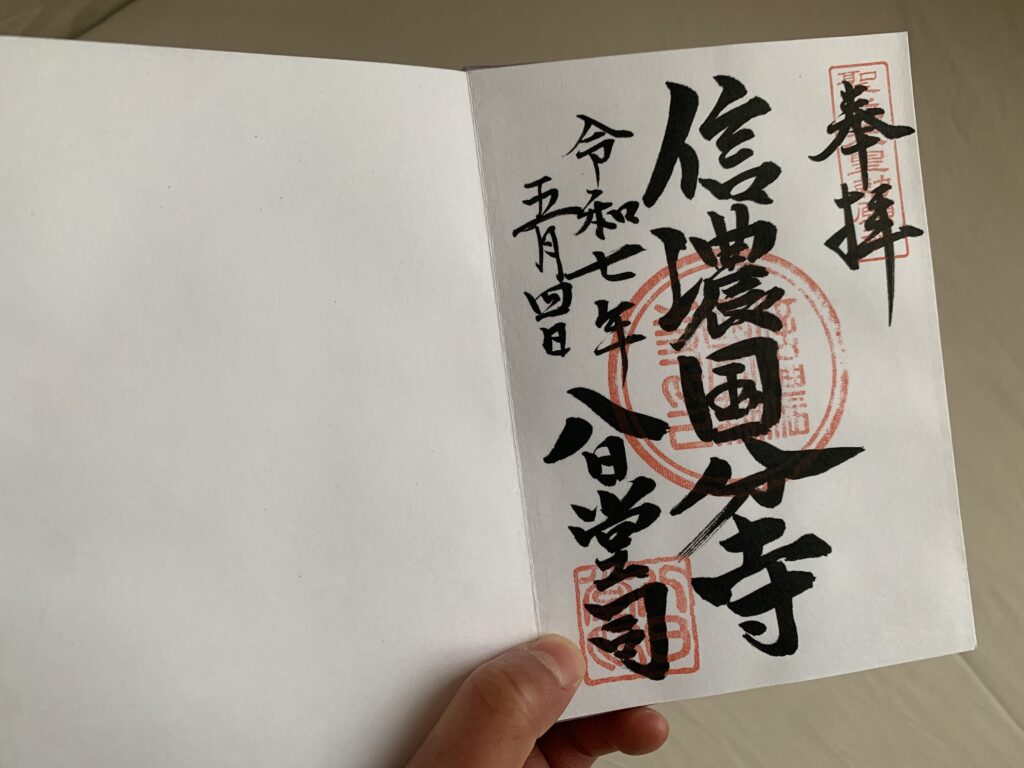 奉拝
信濃国分寺
令和七年
五月四日
八日堂司